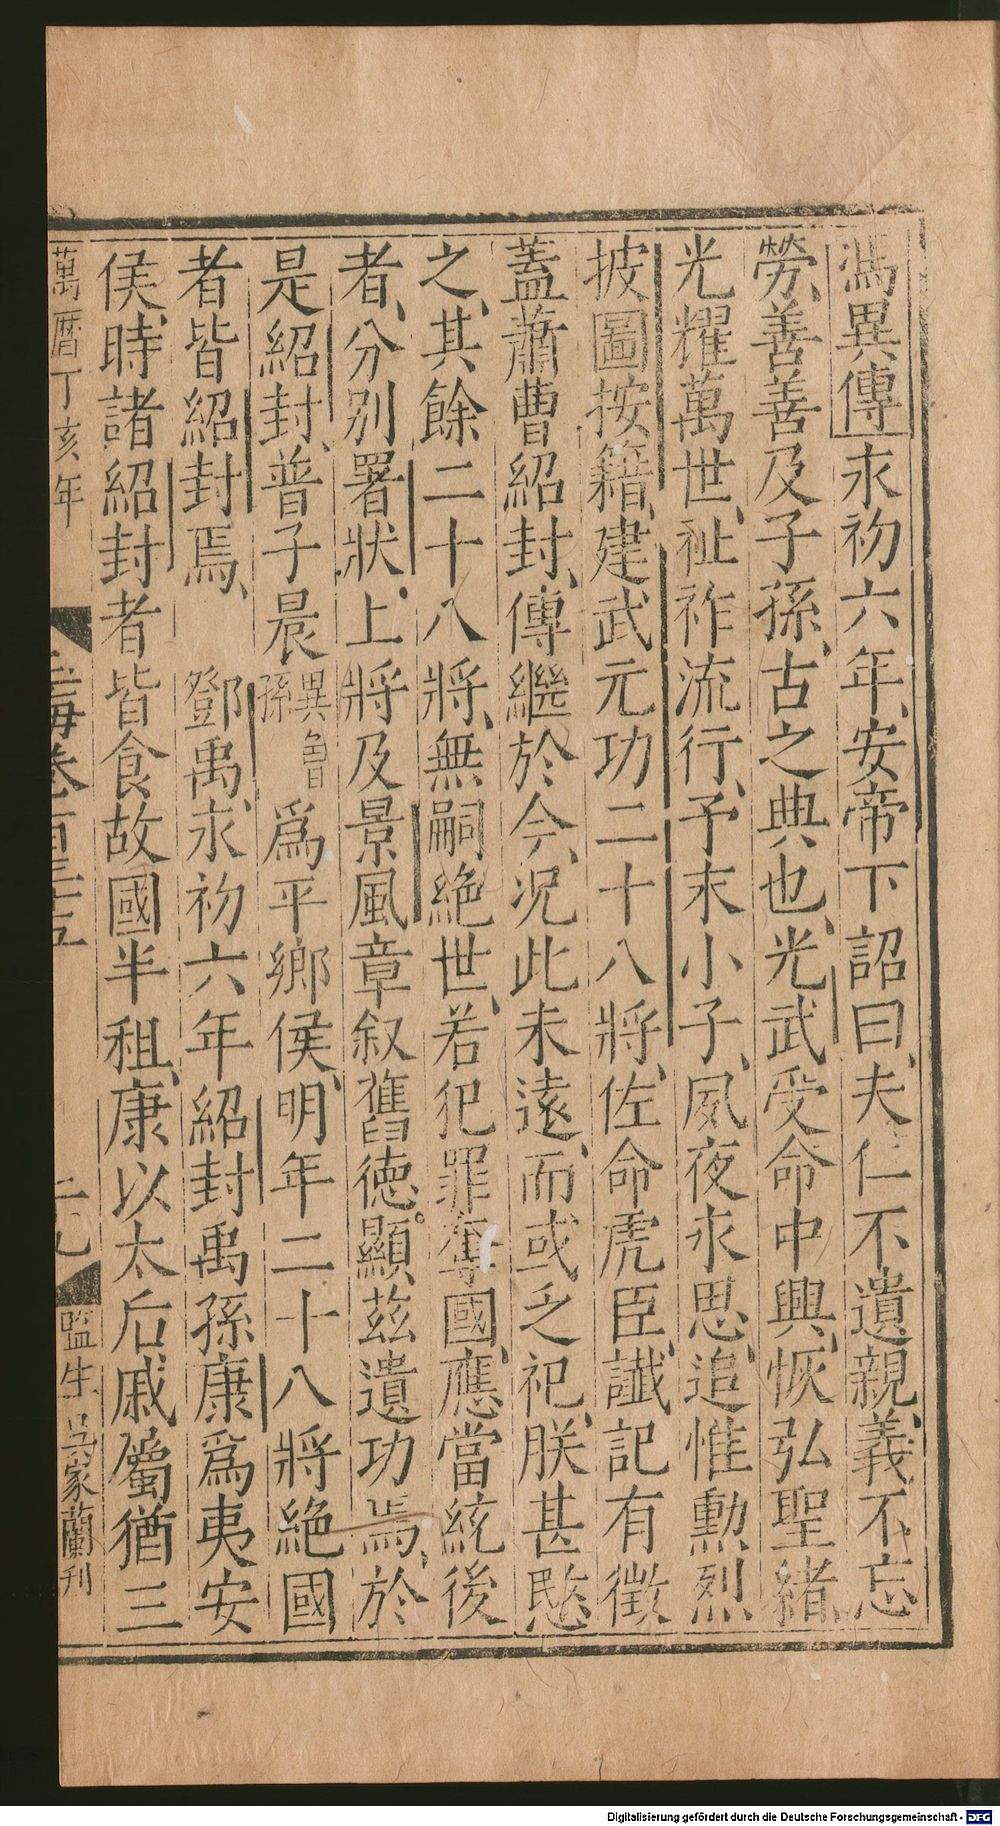 馮異傳永初六年安帝下詔曰夫仁不遺親義不忘
勞善善及子孫古之典也光武受命中興恢弘聖緒
光耀萬世祉祚流行予末小子夙夜永思追惟勳烈
披圖按籍建武元功二十八將佐命虎臣讖記有徵
蓋蕭曹紹封傳繼於今況此未遠而或乏祀朕甚愍
之其餘二十八將無嗣絕世若犯罪奪國應當統後
者分別署狀上將及景風章叙舊德顯茲遺功焉於
是紹封普子晨異孫為平鄉侯明年二十八將絕國
者皆紹封焉 鄧禹永初六年紹封禹孫康為夷安
侯時諸紹封者皆食故國半租康以太后戚屬猶三
萬曆丁亥年
玉海卷百三十五
二九
監生吳家蘭刊
Digitalisierung gefördert durch die Deutsche Forschungsgemeinschaft - DFG